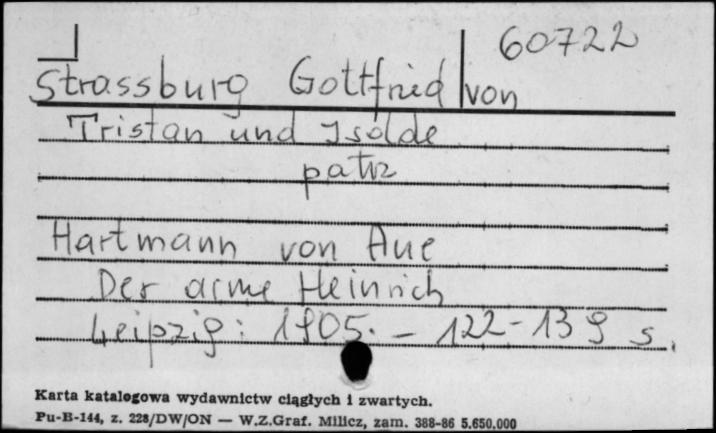 60722
Strassburg Gottfried von
Tristan und Isolde
patrz
Hartmann von Aue
Der arme Heinrich
Leipzig: 1905. – 122-139 s.
Karta katalogowa wydawnictw ciągłych i zwartych.
Pu-B-144, z. 228/DW/ON — W.Z.Graf. Milicz, zam. 388-86 5.650.000